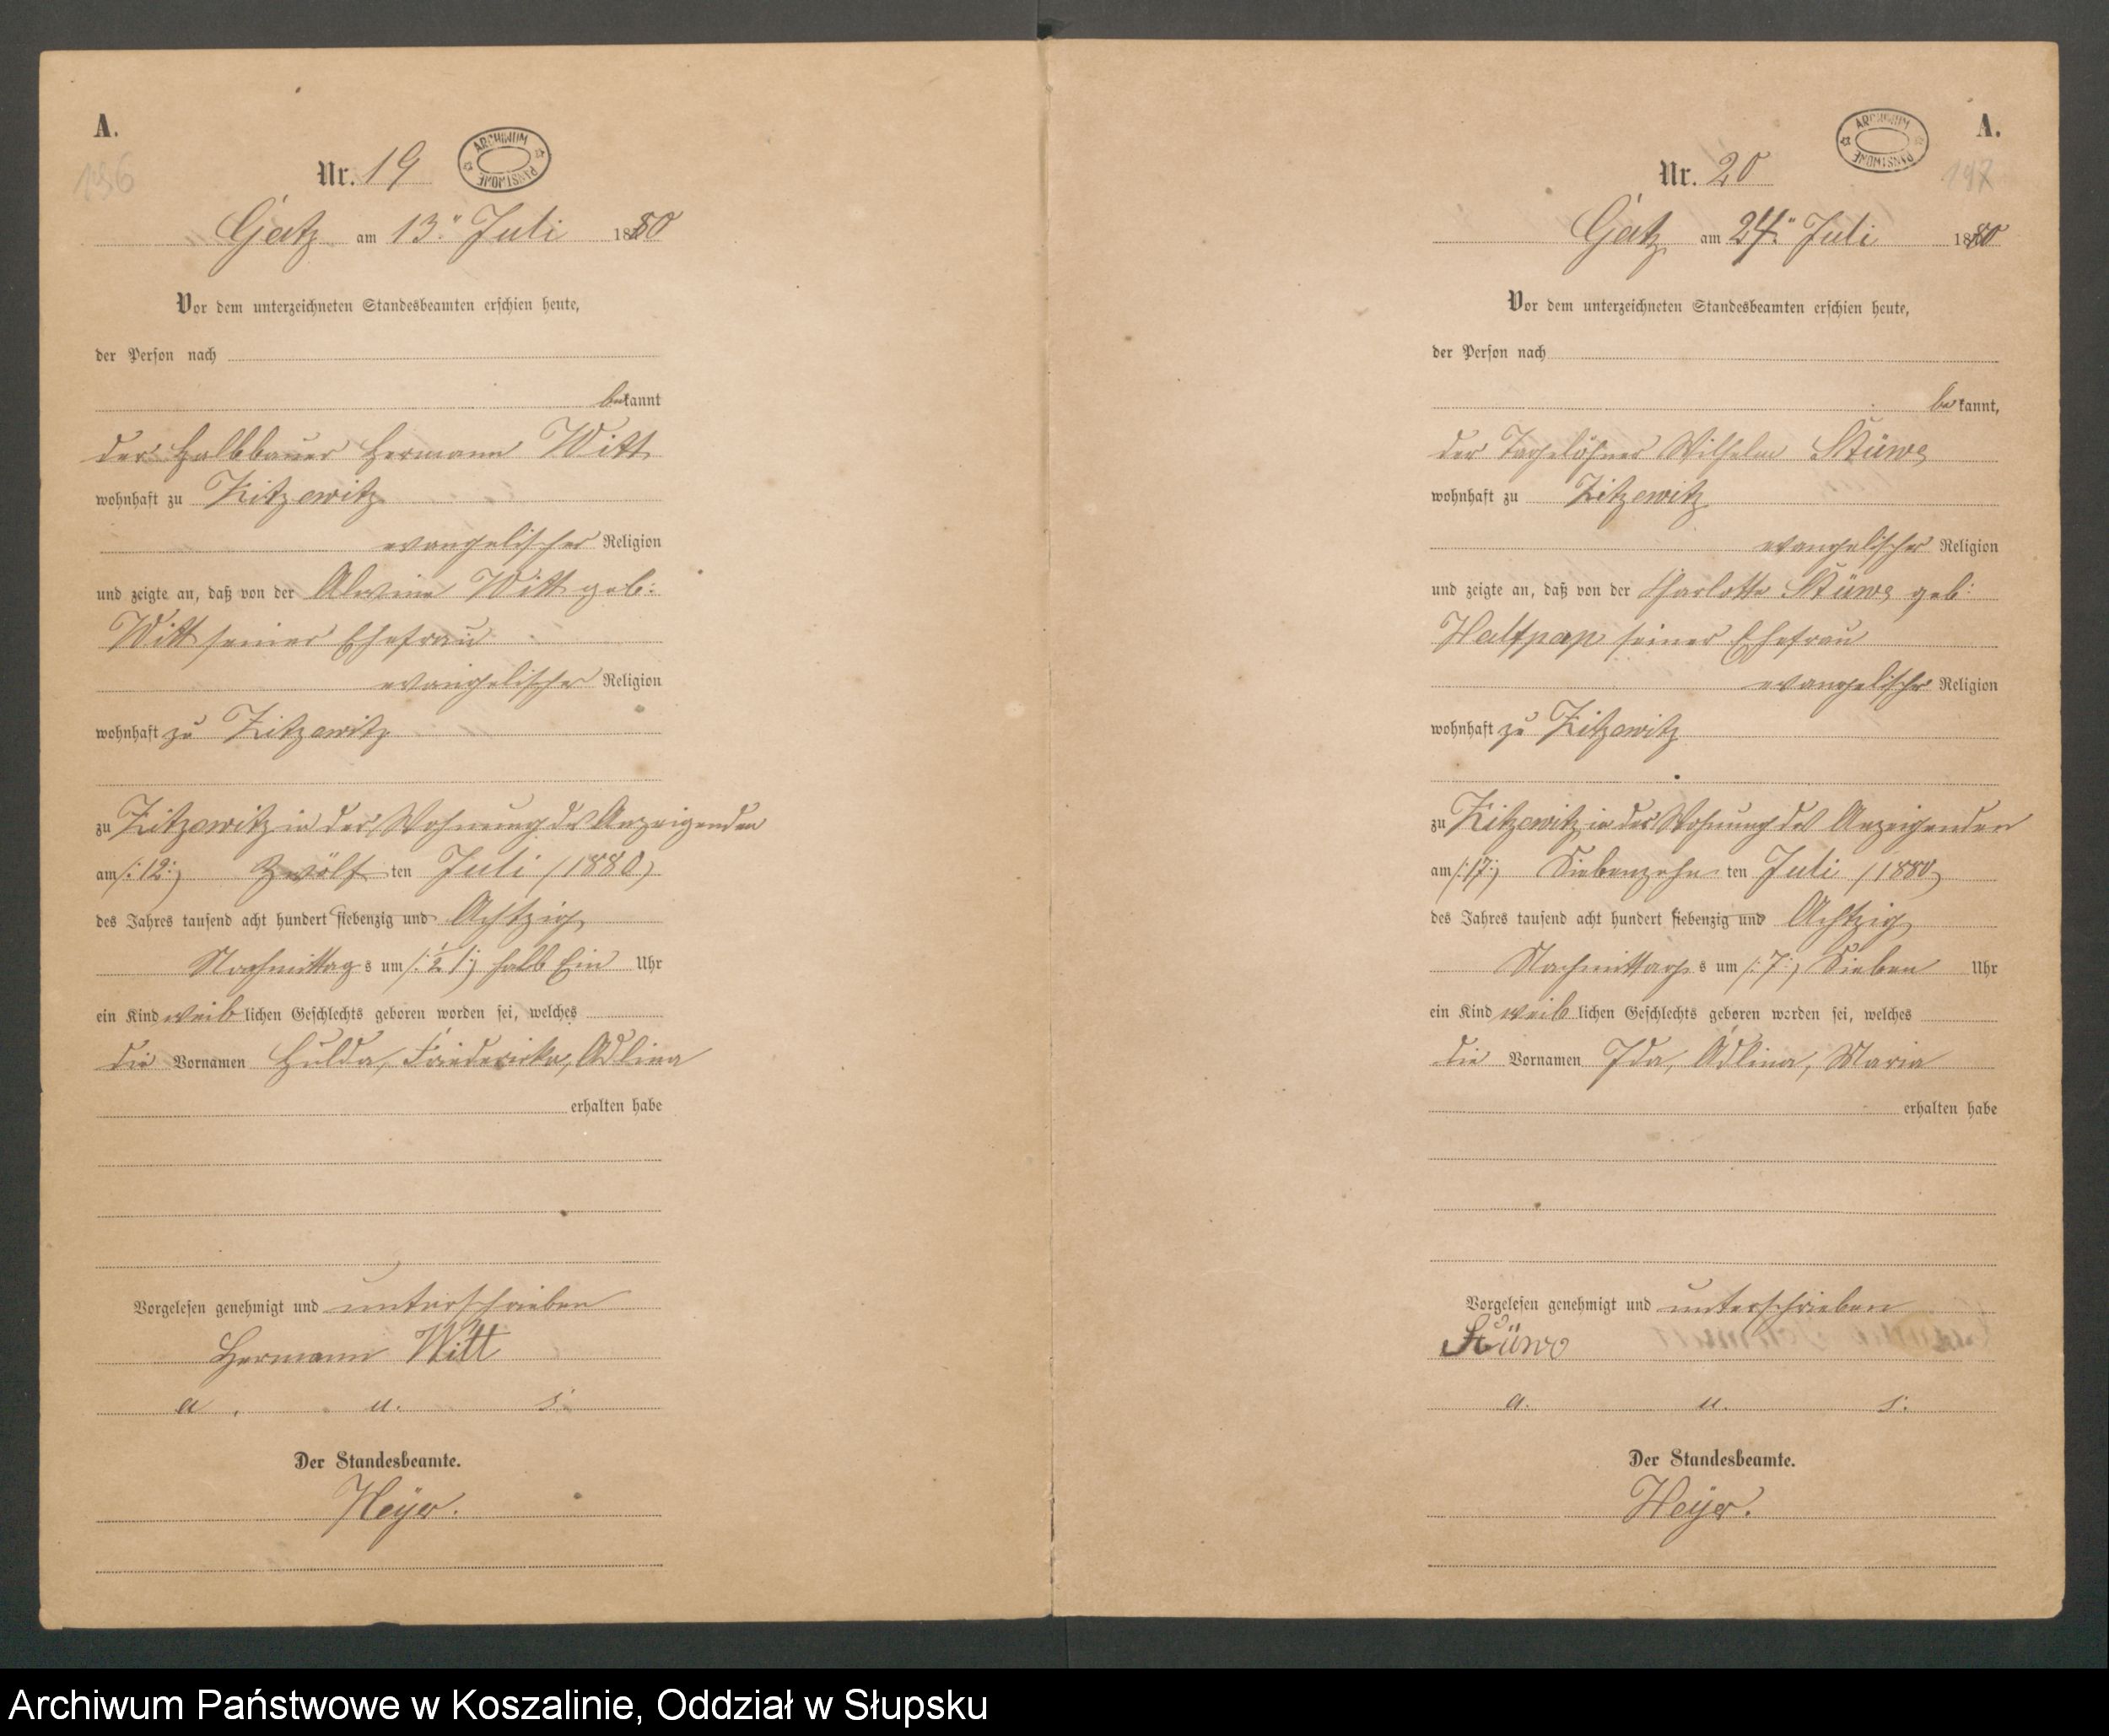 A.
196
Nr. 19
ARCHIWUM PAŃSTWOWE
Gatz am 13. Juli 1880
Vor dem unterzeichneten Standesbeamten erschien heute,
der Person nach
bekannt
der Halbbauer Hermann Witt
wohnhaft zu Zitzewitz
evangelischer Religion
und zeigte an, daß von der Alwine Witt geb:
Witt seiner Ehefrau
evangelischer Religion
wohnhaft zu Zitzewitz
zu Zitzewitz in der Wohnung des Anzeigenden
am /:12:/ Zwölf ten Juli /1880/
des Jahres tausend acht hundert siebenzig und Achtzig
Nachmittags um /:½ 1:/ halb Ein Uhr
ein Kind weiblichen Geschlechts geboren worden sei, welches
die Vornamen Hulda, Friedericke, Adlina
erhalten habe
Vorgelesen genehmigt und unterschrieben
Hermann Witt
a. u. s.
Der Standesbeamte.
Heyer.
A.
197
Nr. 20
ARCHIWUM PAŃSTWOWE
Gatz am 24. Juli 1880
Vor dem unterzeichneten Standesbeamten erschien heute,
der Person nach
bekannt,
der Tagelöhner Wilhelm Stüwe
wohnhaft zu Zitzewitz
evangelischer Religion
und zeigte an, daß von der Charlotte Stüwe geb:
Haltpap seiner Ehefrau
evangelischer Religion
wohnhaft zu Zitzewitz
zu Zitzewitz in der Wohnung des Anzeigenden
am /:17:/ Siebenzehn ten Juli /1880/
des Jahres tausend acht hundert siebenzig und Achtzig
Nachmittags um /:7:/ Sieben Uhr
ein Kind weiblichen Geschlechts geboren worden sei, welches
die Vornamen Ida, Adlina, Maria
erhalten habe
Vorgelesen genehmigt und unterschrieben
Stüwe
a. u. s.
Der Standesbeamte.
Heyer.
Archiwum Państwowe w Koszalinie, Oddział w Słupsku